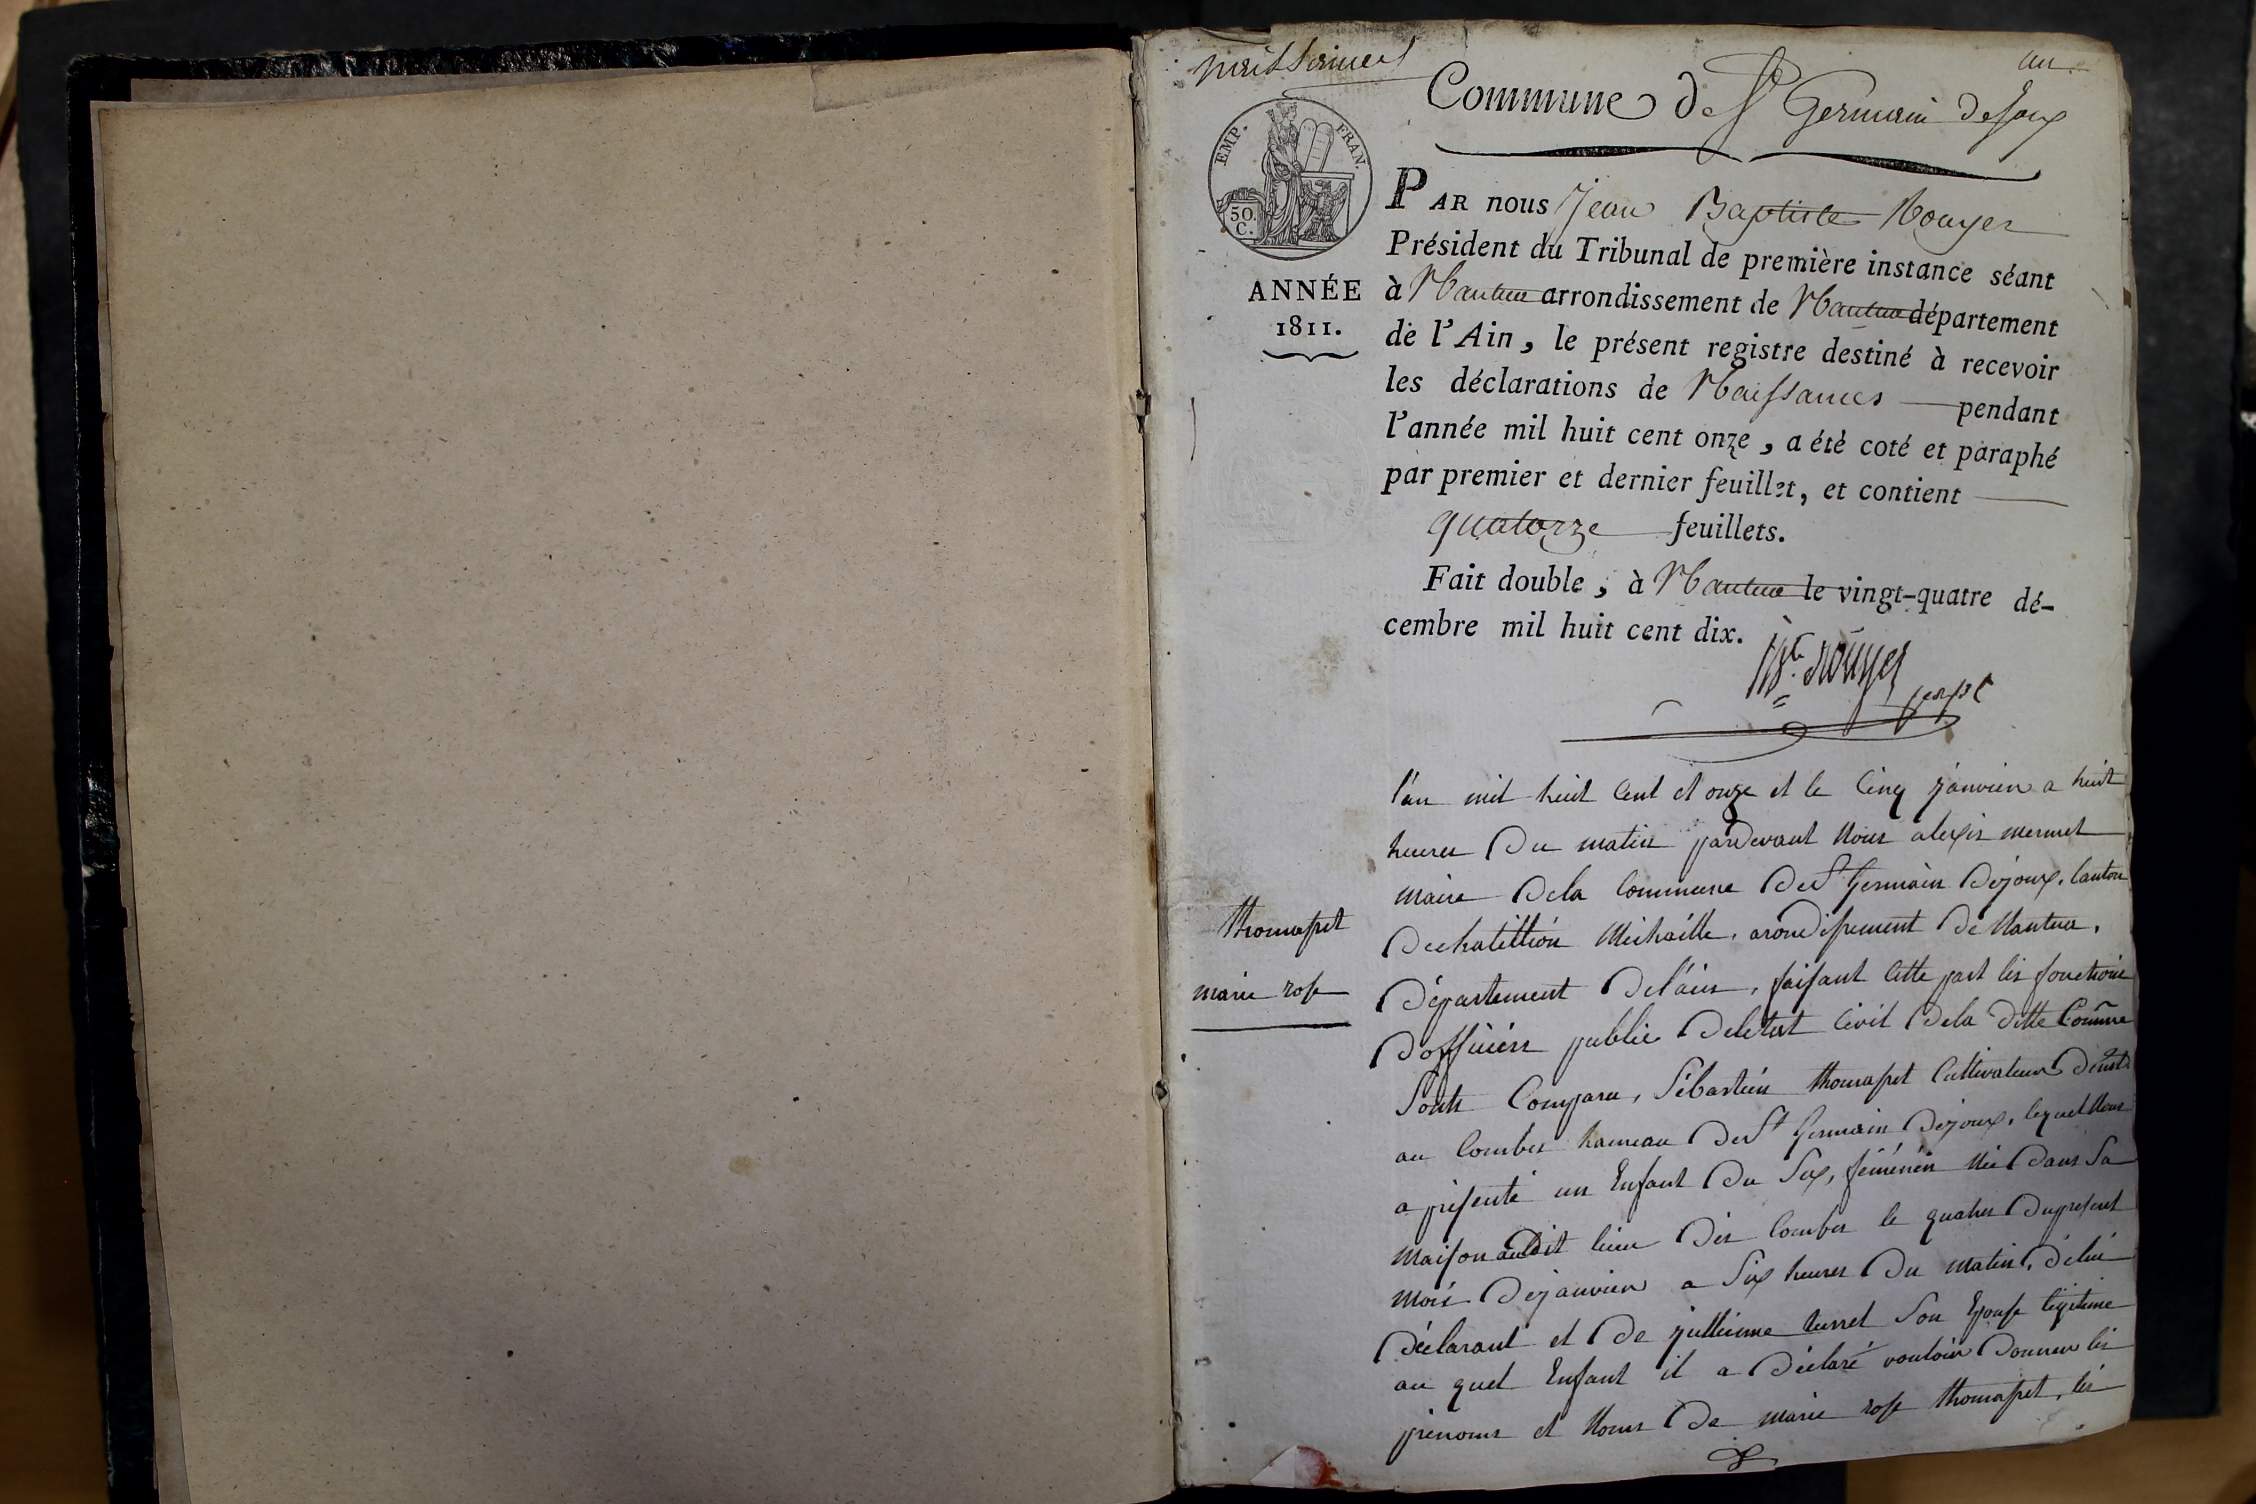 un
Commune de St Germain de Joux
EMP. FRAN.
50. C.
ANNÉE
1811.
PAR nous Jean Baptiste Rouyer
Président du Tribunal de première instance séant
à Nantua arrondissement de Nantua département
de l'Ain, le présent registre destiné à recevoir
les déclarations de Naissances pendant
l'année mil huit cent onze, a été coté et paraphé
par premier et dernier feuillet, et contient
quatorze feuillets.
Fait double, à Nantua le vingt-quatre dé-
cembre mil huit cent dix.
Bte. Rouyer
thomasset
marie rose
l'an mil huit cent et onze et le cinq janvier a huit
heures du matin pardevant nous alexis mermet
maire dela commune de St Germain dejoux, canton
dechatillion Michaille, arondissement de Nantua,
département del'ain, faisant cette part les fonctions
dofficiér public deletat civil dela ditte Comune
Sont Comparu, Sébastién thomasset Cultivateur
au Combes hameau de St Germain dejoux, lequel nous
a présenté un Enfant du Sex, féménén né dans Sa
maison audit lieu des Combes le quatre dupresent
mois dejanvier a Six heures du matin, délui
déclarant et de jullienne turrel Son Epouse legitime
au quel Enfant il a déclaré vouloir donner les
prenoms et noms de marie rose thomasset, les